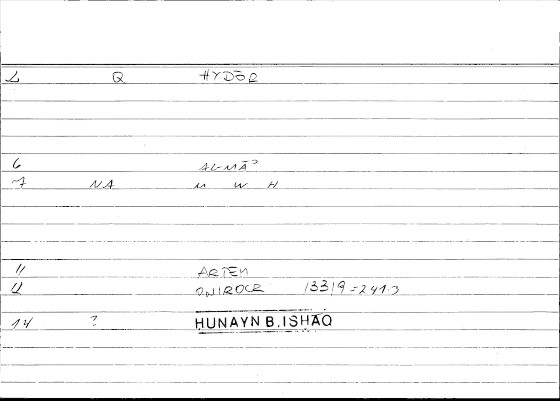 2 Q HYDŌR
6 AL-MĀʾ
7 NA M W H
11 ARTEM
12 ONIROCR 133,9 = 241.3
14 ? HUNAYN B. ISHAQ